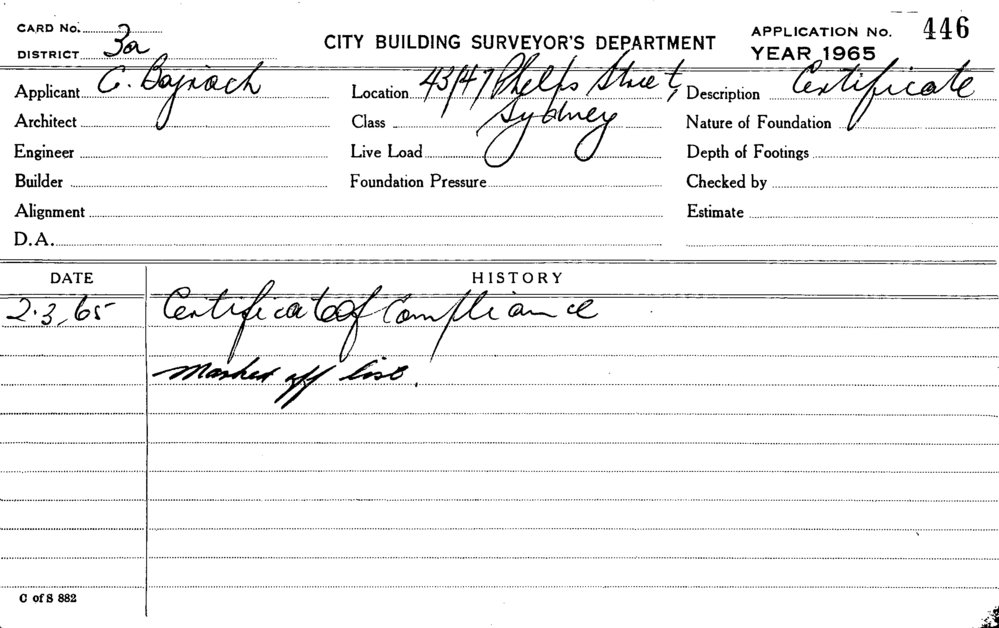 CARD No.
DISTRICT 3a
CITY BUILDING SURVEYOR'S DEPARTMENT
APPLICATION No. 446
YEAR 1965
Applicant C.
Location 43/47 Phelps Street,
Sydney
Description Certificate
Architect
Class
Nature of Foundation
Engineer
Live Load
Depth of Footings
Builder
Foundation Pressure
Checked by
Alignment
Estimate
D.A.
DATE HISTORY
2.3.65 Certificate of Compliance
Marked off list.
C of S 882